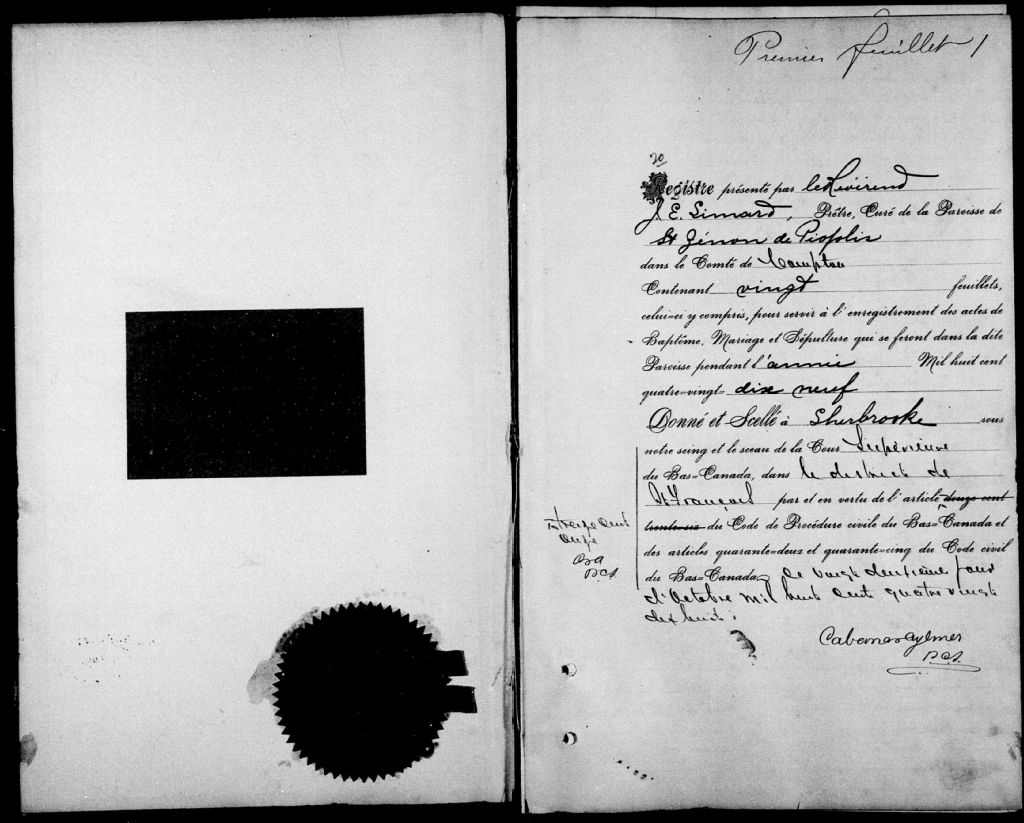 Premier feuillet 1
20
Registre présenté par le Révérend
J. E. Simard, Prêtre, Curé de la Paroisse de
St Zénon de Piopolis
dans le Comté de Compton
Contenant vingt feuillets,
celui-ci y compris, pour servir à l'enregistrement des actes de
Baptême, Mariage et Sépulture qui se feront dans la dite
Paroisse pendant l'année Mil huit cent
quatre-vingt- dix neuf
Donné et Scellé à Sherbrooke sous
notre seing et le sceau de la Cour Supérieure
du Bas-Canada, dans le district de
St François par et en vertu de l'article douze cent
trente-six du Code de Procédure civile du Bas-Canada et
treize cent
onze
des articles quarante-deux et quarante-cinq du Code civil
du Bas-Canada, ce vingt deuxième jour
d'Octobre mil huit cent quatre vingt
dix huit.
Cabana &amp; Aylmer
P.C.S.